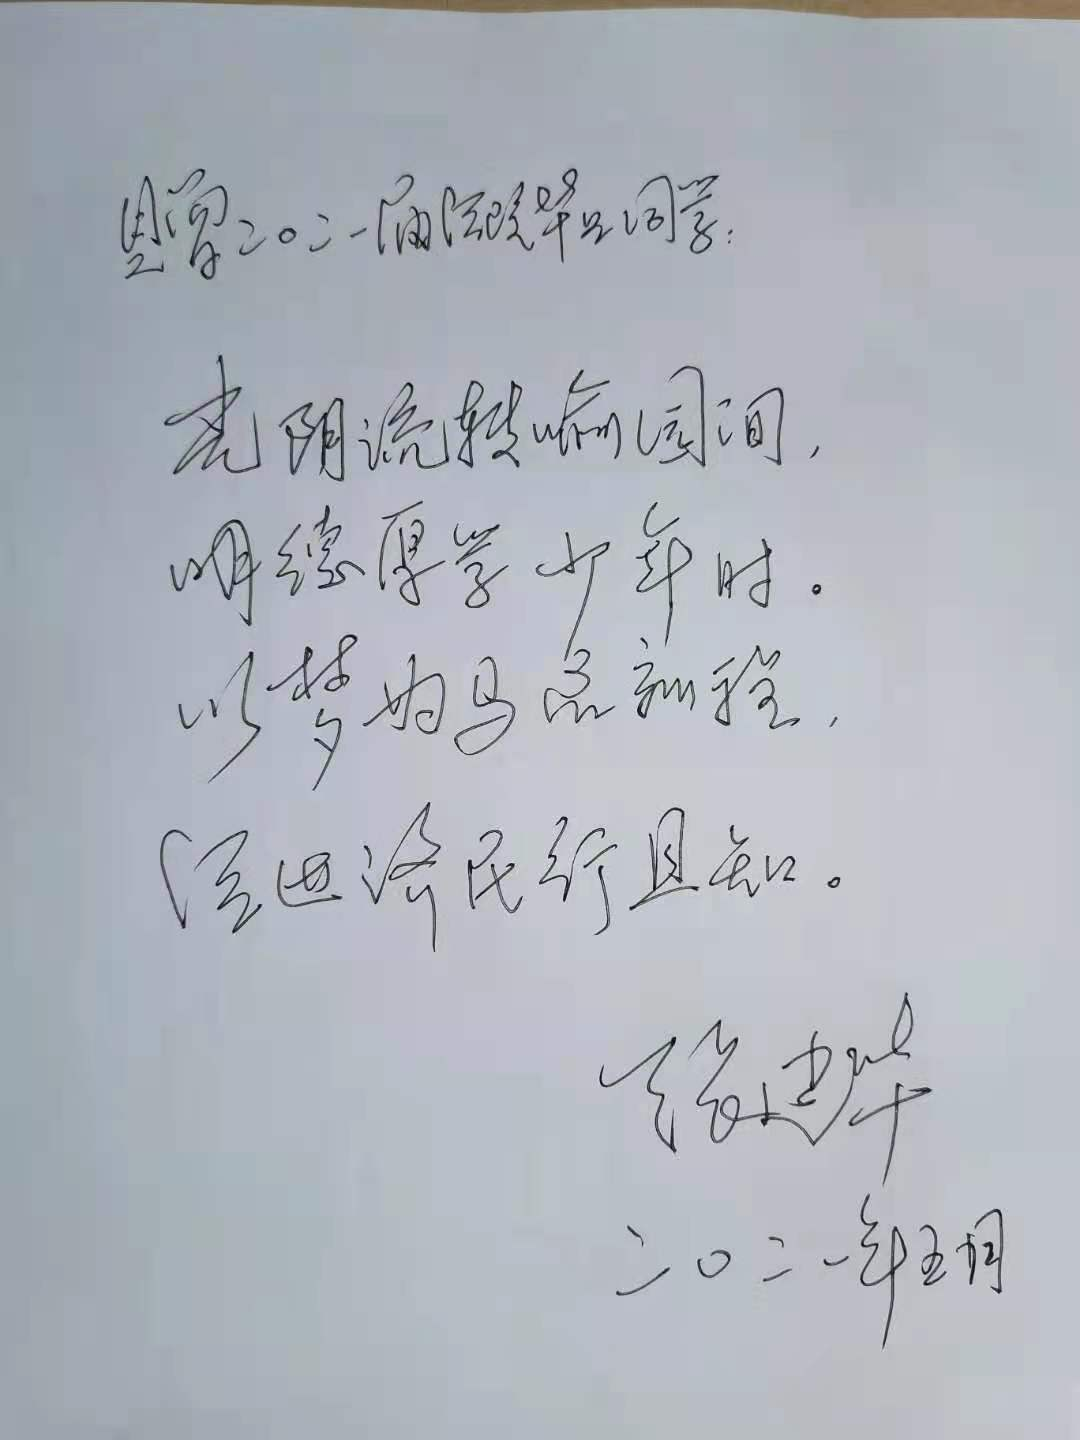 题赠二〇二一届法院毕业同学：
光阴流转喻园间，
明德厚学少年时。
以梦为马启新程，
法进济民行且知。
张建华
二〇二一年五月